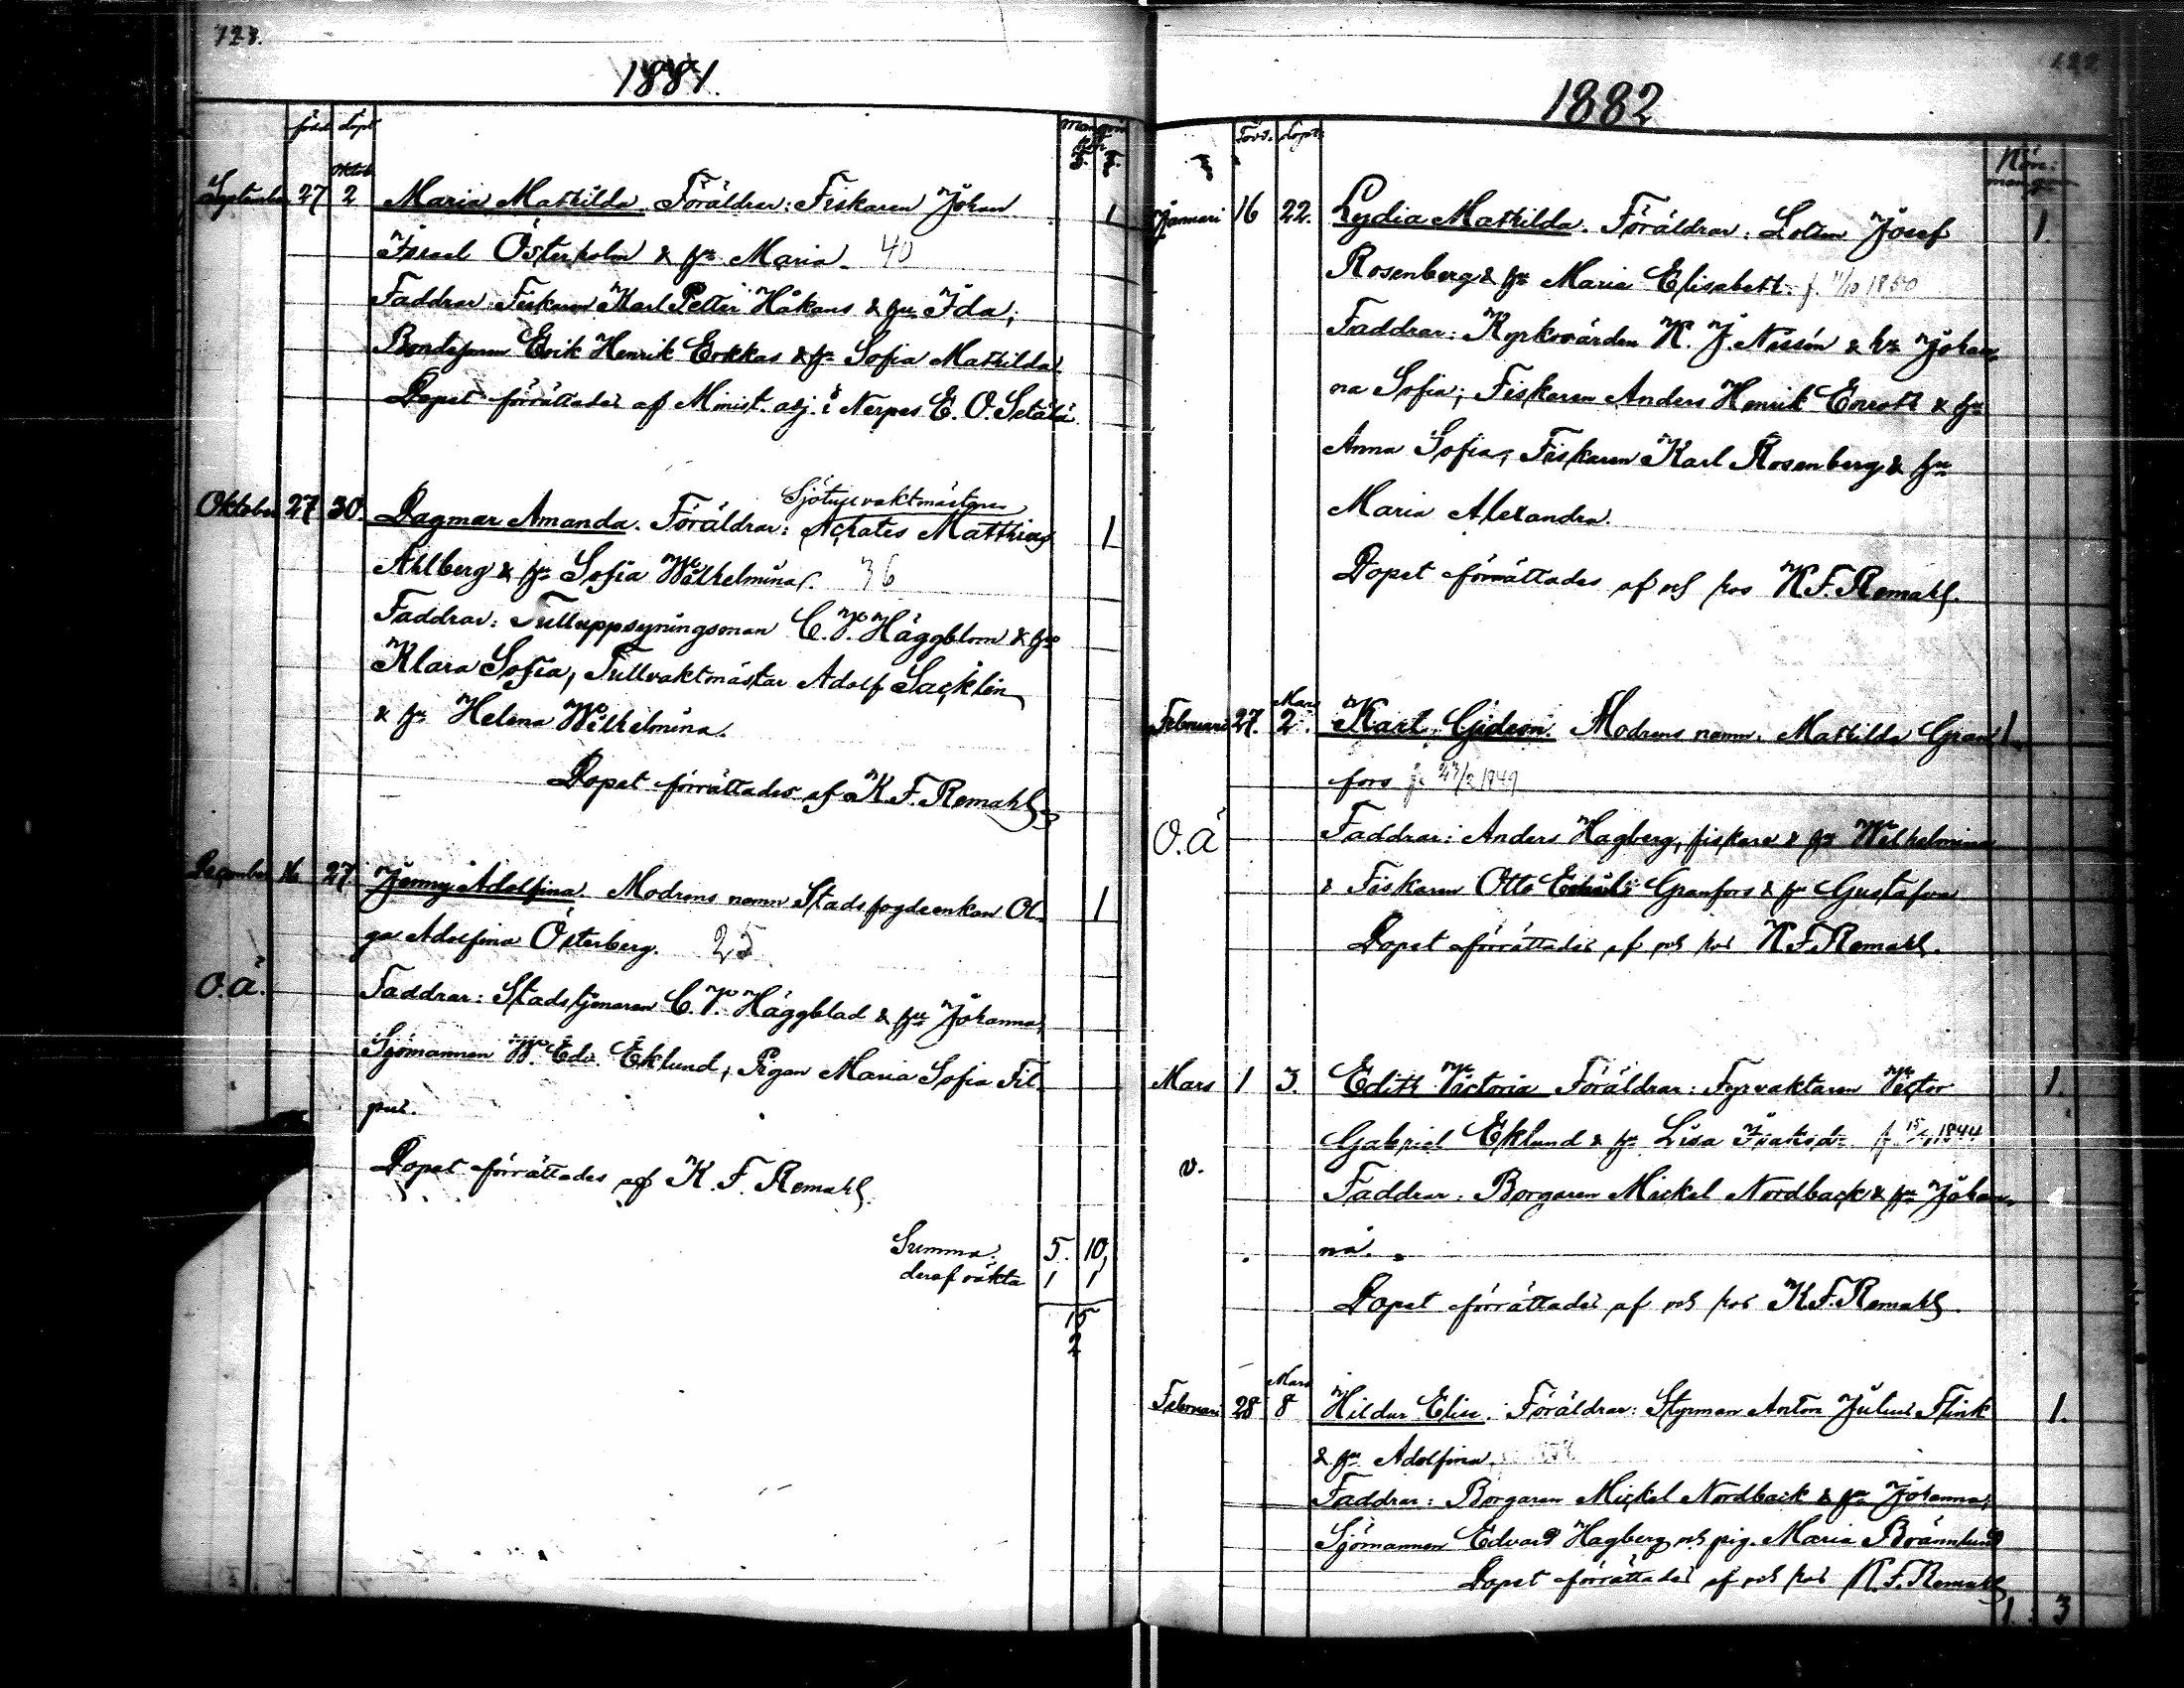 128.
1881.
född döpt
Oktob.
September 27 2 Maria Mathilda. Föräldrar: Fiskaren Johan 1
Israel Österholm & hu Maria. 40
Faddrar: Fiskaren Karl Petter Håkans & hu Ida;
Bondesonen Erik Henrik Erkkas & hu Sofia Mathilda.
Dopet förrättades af Minist. adj. i Nerpes E. O. Setälä
Sjötullvaktmästaren
Oktober 27 30. Dagmar Amanda. Föräldrar: Achates Matthias 1
Ahlberg & hu Sofia Wilhelmina. 36
Faddrar: Tulluppsyningsman C. V. Häggblom & hu
Klara Sofia, Tullvaktmästar Adolf Sacklin
& hu Helena Wilhelmina.
Dopet förrättades af K. F. Remahl
December 16 27. Jenny Adolfina. Modrens namn Stadsfogdeenkan Ol- 1
ga Adolfina Österberg. 25
O.Ä.
Faddrar: Stadstjenaren C. V. Häggblad & hu Johanna,
Sjömannen W. Edv. Eklund, Pigan Maria Sofia Fil-
pus.
Dopet förrättades af K. F. Remahl.
Summa. 5. 10,
deraf oäkta 1 1
15
2
1882
Född. döpt.
Januari 16 22. Lydia Mathilda. Föräldrar: Lotsen Josef 1.
Rosenberg & hu Maria Elisabett. f. 11/10 1850
Faddrar: Kyrkovärden K. J. Nissén & hu Johan-
na Sofia; Fiskaren Anders Henrik Enrott & hu
Anna Sofia; Fiskaren Karl Rosenberg & hu
Maria Alexandra.
Dopet förrättades af och hos K. F. Remahl.
Mars
Februari 27. 2. Karl Gideon. Modrens namn: Mathilda Gran- 1.
fors f. 23/2 1849
O.Ä
Faddrar: Anders Hagberg, fiskare & hu Wilhelmina
& Fiskaren Otto Granfors & hu Gustafva
Dopet förrättades af och hos K. F. Remahl.
Mars 1 3. Edith Victoria Föräldrar: Fyrvaktaren Victor 1.
Gabriel Eklund & hu Lisa Isaksdr f. 1844
v.
Faddrar: Borgaren Mickel Nordback & hu Johan-
na.
Dopet förrättades af och hos K. F. Remahl.
Mars
Februari 28 8 Hildur Elise. Föräldrar: Styrman Anton Julius Flink 1.
& hu Adolfina.
Faddrar: Borgaren Mickel Nordback & hu Johanna;
Sjömannen Edvard Hagberg och pig. Maria Brännlund
Dopet förrättades af och hos K. F. Remahl
1. 3